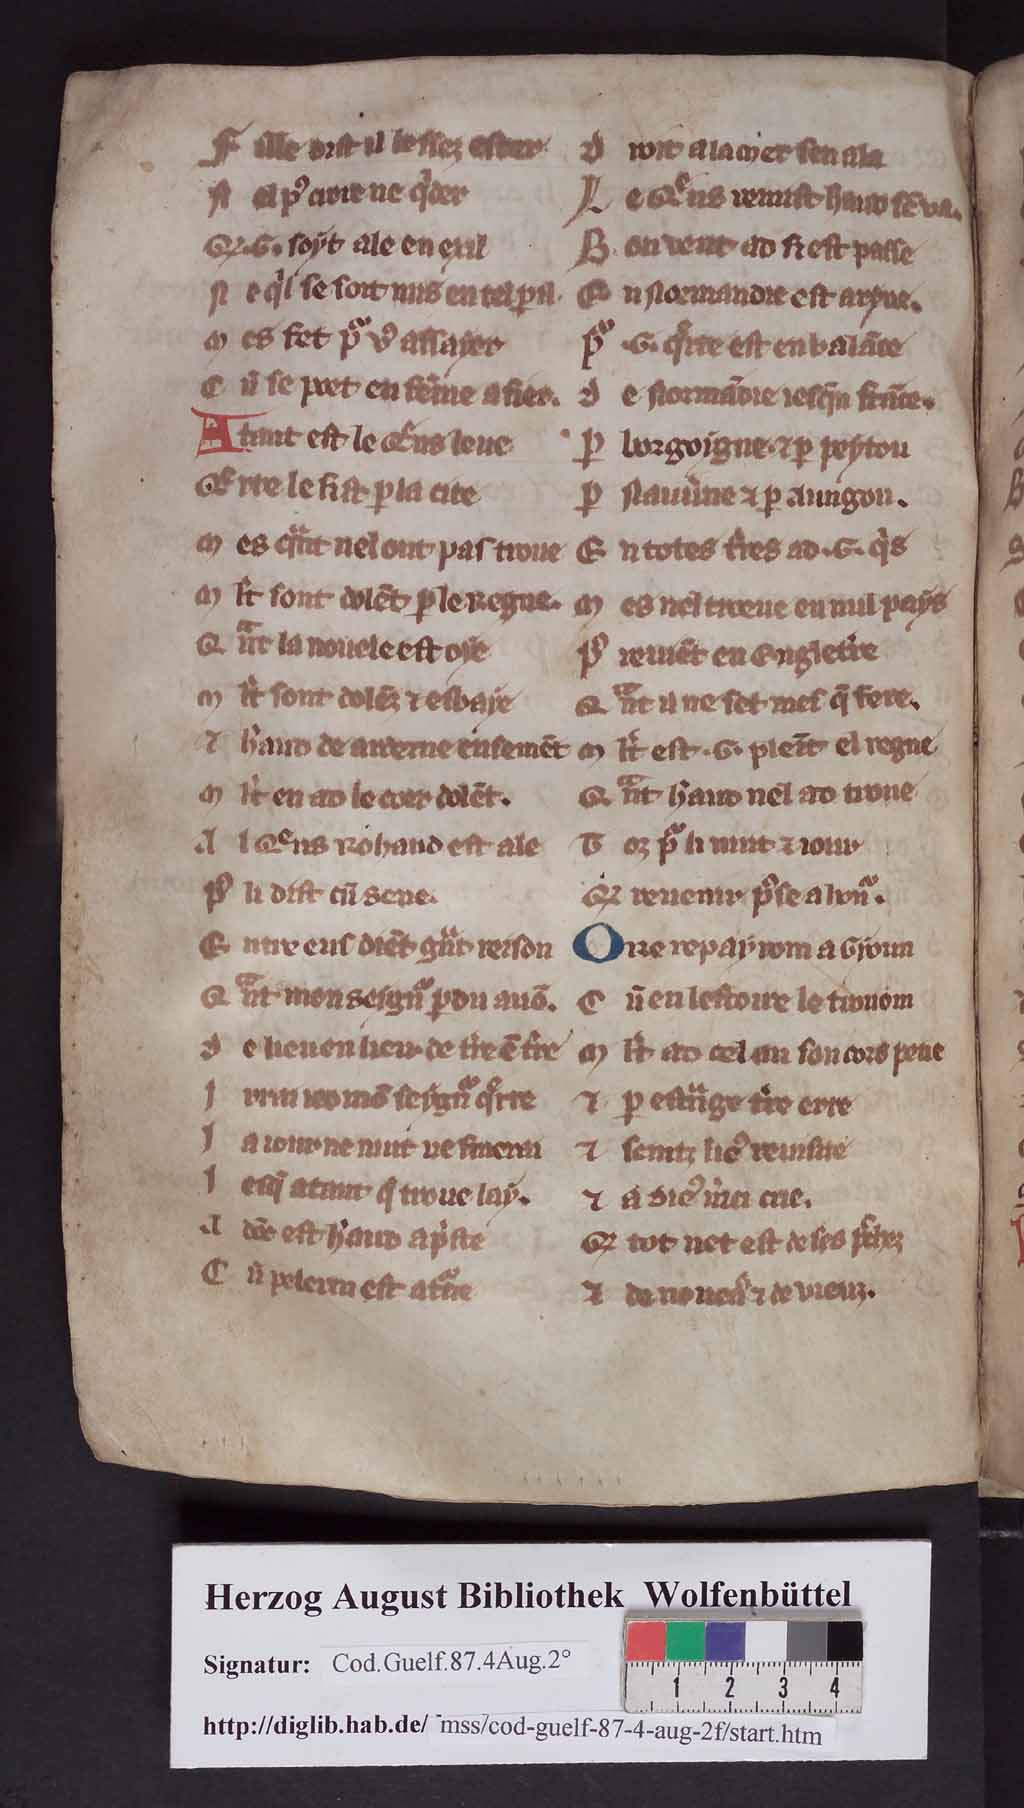 F ille dist il lessez ester
N el puꝰ
Q̄ .G. soyt ale en exil
N e qͥl se soit mis en tel pil.
M es fet
C ū se poet en feme a fier.
A tant est le Q̄ns leue
Q̄rre le fist ꝑ la cite
M es qͣnt nel ont pas troue
M lt sont dolēt ꝑ le regne.
Q ͣnt la nouele est oye
M lt sont dolēz ⁊ esbaye
⁊ h̓aud de ardeme ensemēt
M lt en ad le coer dolēt.
A l Q̄ns Rohaud est ale
li dist cū sene.
E ntre eus diēt gͣnt reison
Q ͣnt mon seignͬ ꝑdu auō.
D e lieu en lieu de tr̄e ē tr̄e
I rrai mō seygnͬ q̄rre
I a iour ne nuit ne finerai
I esq̄ atant q̄ troue lay.
A donc est h̓aud apste
C ū pelerin est
D roit a la mer sen ala
L e Q̄ns remist h̓aud sē va.
B on vent ad si est passe
E n Normandie est aryue.
.G. q̄rre est en balāce
D e Normādie iesqͣ frāce.
ꝑ borgoigne ⁊ ꝑ peytou
ꝑ ⁊ ꝑ Aungou.
E n totes tr̄es ad .G. qͥs
M es nel troeue en nul pays
reuēt en Engletr̄e
Q ͣnt il ne set mes q̄ fere.
M lt est .G. pleīt el regne
Q ͣnt h̓aud nel ad troue
T oz li nuit ⁊ iour
Q̄ reuenir
O re repayrom a Gyoun
C ū en lestoire le trouom
M lt ad cel an son cors pene
⁊ ꝑ estͣnge tr̄e erre
⁊ seintz lieꝰ reuisite
⁊ a dieꝰ m̄ci crie.
Q̄ tot net est de ses pechez
⁊ de noueaꝰ ⁊ de vieuz.
Herzog August Bibliothek Wolfenbüttel
Signatur: Cod.Guelf.87.4Aug.2°
1 2 3 4
http://diglib.hab.de/ mss/cod-guelf-87-4-aug-2f/start.htm